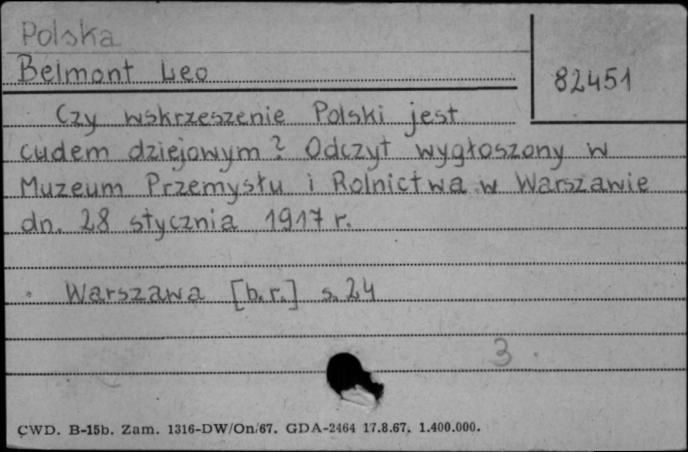 Polska
Belmont Leo
82451
Czy wskrzeszenie Polski jest
cudem dziejowym? Odczyt wygłoszony w
Muzeum Przemysłu i Rolnictwa w Warszawie
dn. 28 stycznia 1917 r.
Warszawa [b.r.] s. 24
3
CWD. B-15b. Zam. 1316-DW/On/67. GDA-2464 17.8.67. 1.400.000.